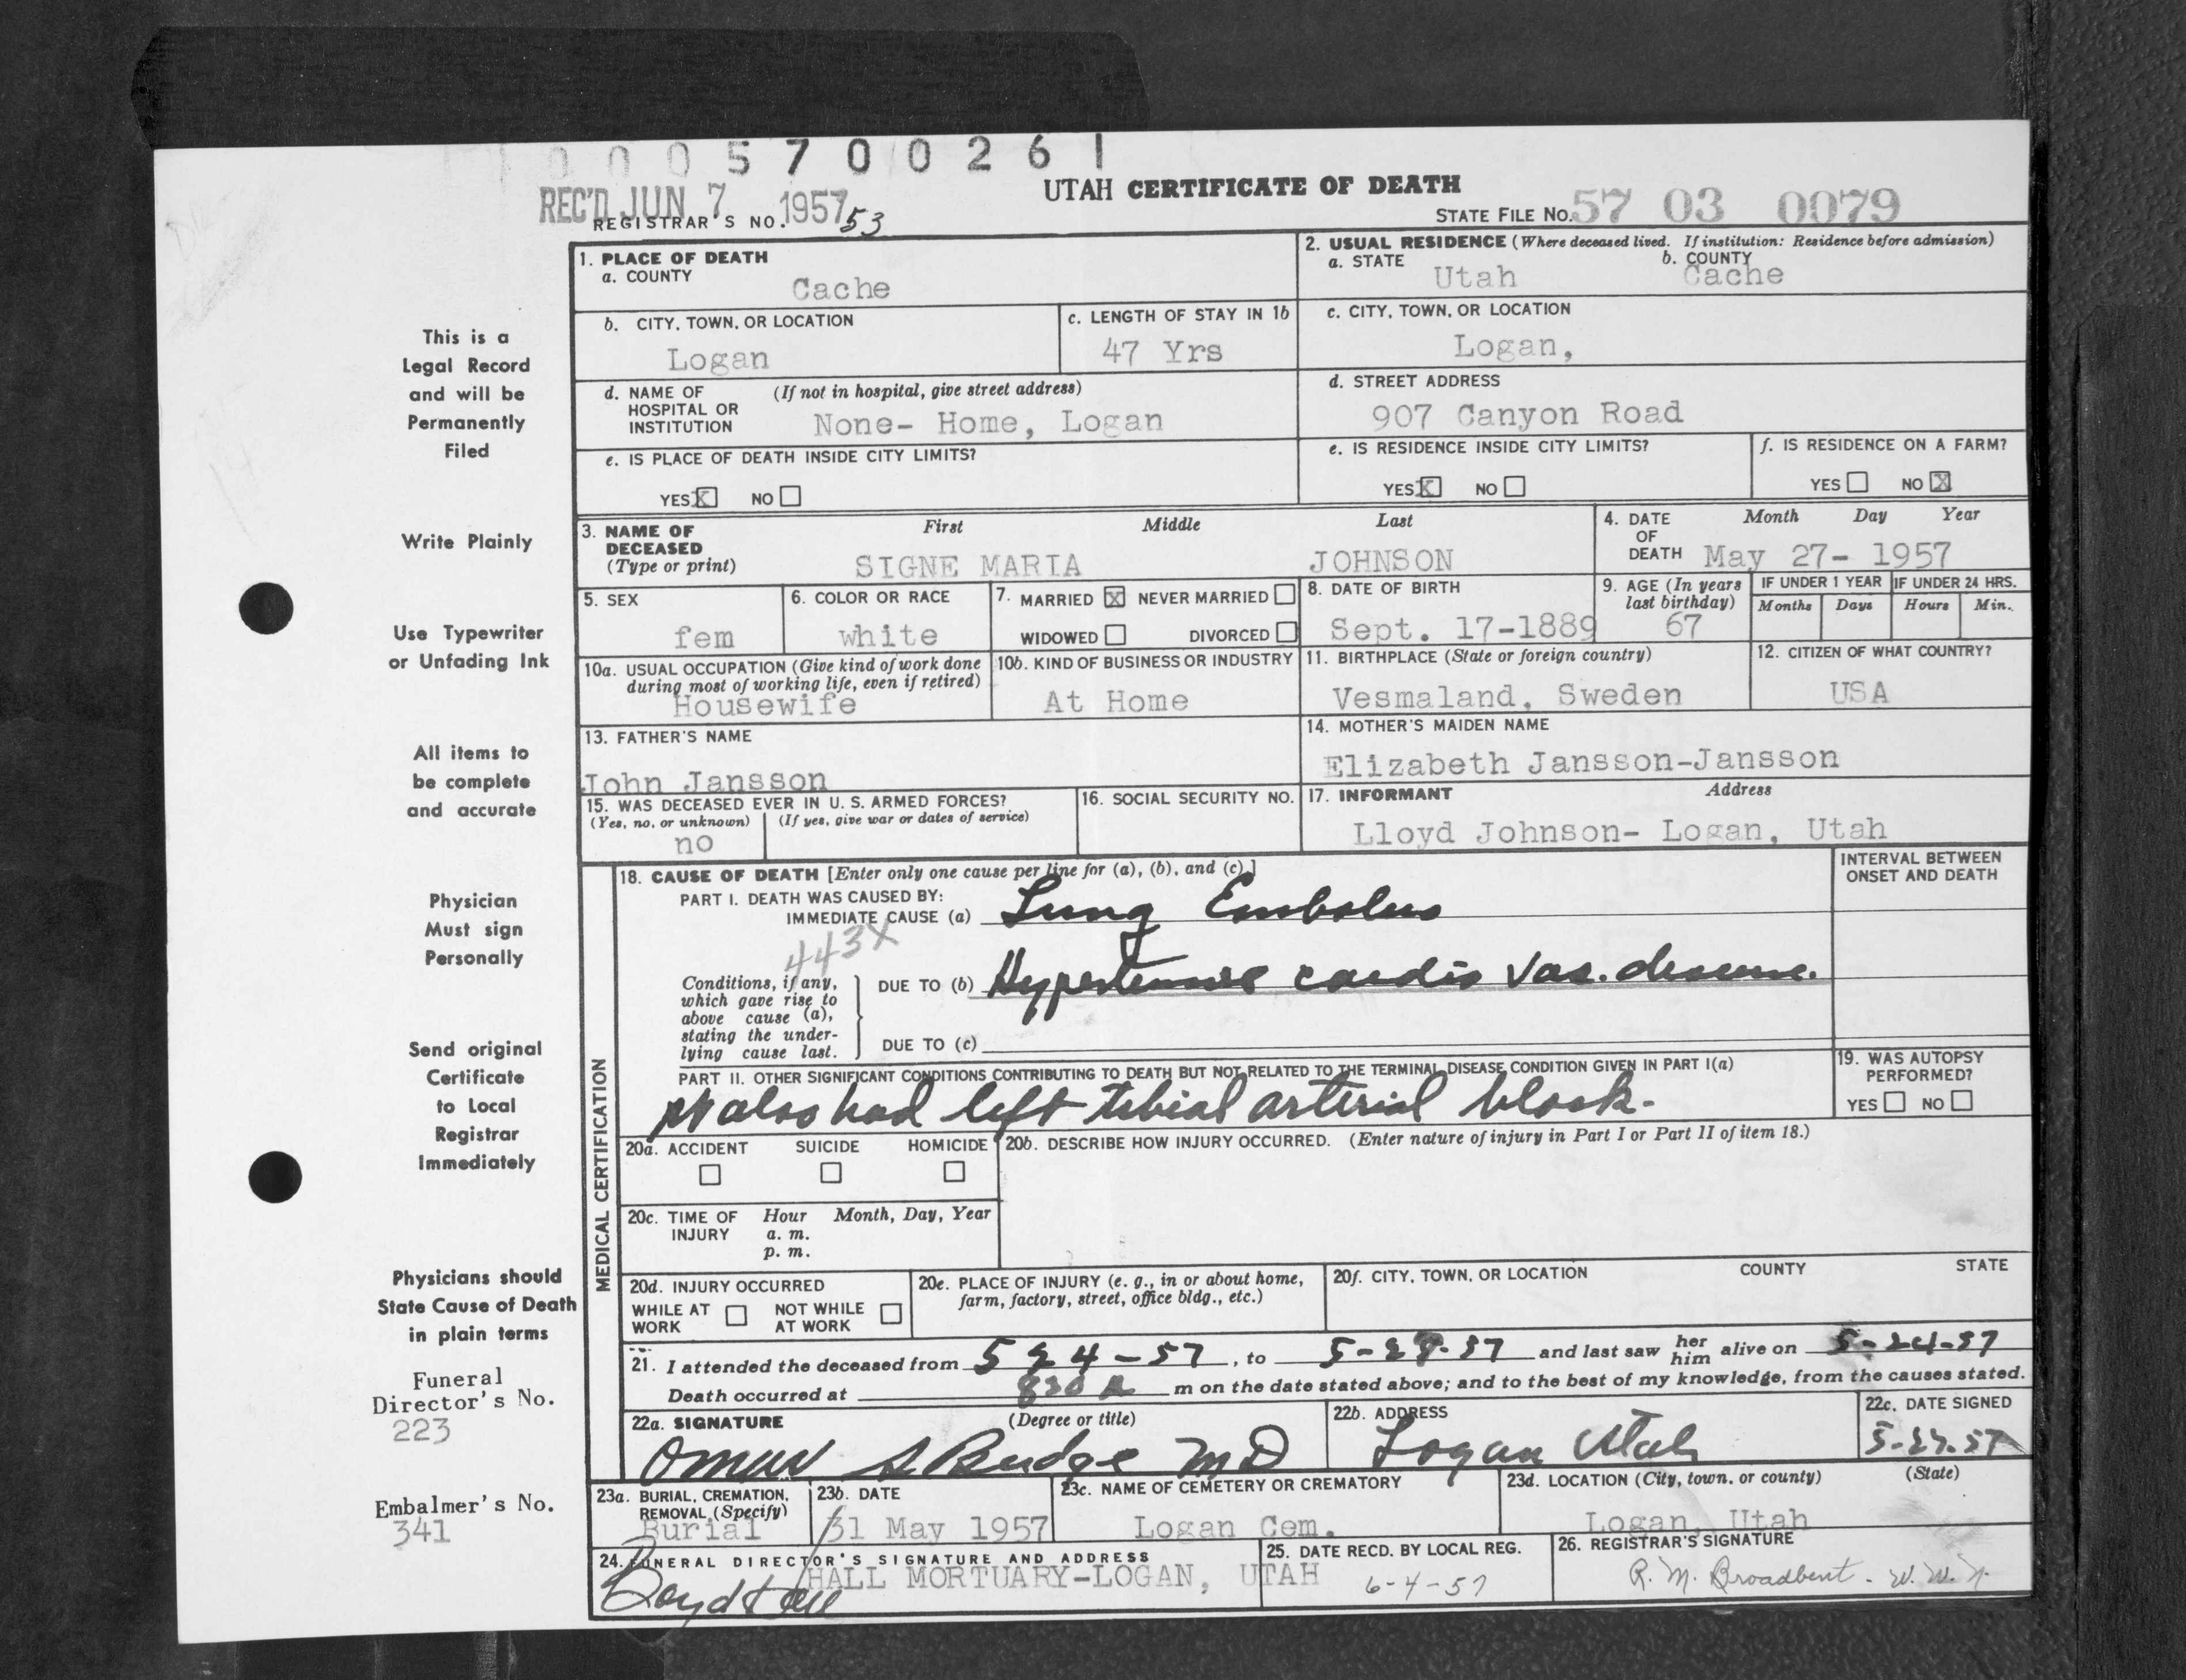 0005700261
REC'D JUN 7 1957
UTAH CERTIFICATE OF DEATH
REGISTRAR'S NO. 53
STATE FILE NO. 57 03 0079
This is a
Legal Record
and will be
Permanently
Filed
Write Plainly
Use Typewriter
or Unfading Ink
All items to
be complete
and accurate
Physician
Must sign
Personally
Send original
Certificate
to Local
Registrar
Immediately
Physicians should
State Cause of Death
in plain terms
Funeral
Director's No.
223
Embalmer's No.
341
1. PLACE OF DEATH
a. COUNTY
Cache
2. USUAL RESIDENCE (Where deceased lived. If institution: Residence before admission)
a. STATE
Utah
b. COUNTY
Cache
b. CITY, TOWN, OR LOCATION
Logan
c. LENGTH OF STAY IN 1b
47 Yrs
c. CITY, TOWN, OR LOCATION
Logan,
d. NAME OF (If not in hospital, give street address)
HOSPITAL OR
INSTITUTION
None- Home, Logan
d. STREET ADDRESS
907 Canyon Road
e. IS PLACE OF DEATH INSIDE CITY LIMITS?
YES X NO
e. IS RESIDENCE INSIDE CITY LIMITS?
YES X NO
f. IS RESIDENCE ON A FARM?
YES NO X
3. NAME OF
DECEASED
(Type or print)
First Middle Last
SIGNE MARIA JOHNSON
4. DATE
OF
DEATH
Month Day Year
May 27- 1957
5. SEX
fem
6. COLOR OR RACE
white
7. MARRIED X NEVER MARRIED
WIDOWED DIVORCED
8. DATE OF BIRTH
Sept. 17-1889
9. AGE (In years
last birthday)
67
IF UNDER 1 YEAR
Months Days
IF UNDER 24 HRS.
Hours Min.
10a. USUAL OCCUPATION (Give kind of work done
during most of working life, even if retired)
Housewife
10b. KIND OF BUSINESS OR INDUSTRY
At Home
11. BIRTHPLACE (State or foreign country)
Vesmaland, Sweden
12. CITIZEN OF WHAT COUNTRY?
USA
13. FATHER'S NAME
John Jansson
14. MOTHER'S MAIDEN NAME
Elizabeth Jansson-Jansson
15. WAS DECEASED EVER IN U. S. ARMED FORCES?
(Yes, no, or unknown) (If yes, give war or dates of service)
no
16. SOCIAL SECURITY NO.
17. INFORMANT Address
Lloyd Johnson- Logan, Utah
MEDICAL CERTIFICATION
18. CAUSE OF DEATH [Enter only one cause per line for (a), (b), and (c).]
INTERVAL BETWEEN
ONSET AND DEATH
PART I. DEATH WAS CAUSED BY:
IMMEDIATE CAUSE (a) Lung Embolus
443X
Conditions, if any,
which gave rise to
above cause (a),
stating the under-
lying cause last.
DUE TO (b) Hypertensive cardio Vas. disease.
DUE TO (c)
PART II. OTHER SIGNIFICANT CONDITIONS CONTRIBUTING TO DEATH BUT NOT RELATED TO THE TERMINAL DISEASE CONDITION GIVEN IN PART I(a)
pt also had left tibial arterial block.
19. WAS AUTOPSY
PERFORMED?
YES NO
20a. ACCIDENT SUICIDE HOMICIDE
20b. DESCRIBE HOW INJURY OCCURRED. (Enter nature of injury in Part I or Part II of item 18.)
20c. TIME OF Hour Month, Day, Year
INJURY a. m.
p. m.
20d. INJURY OCCURRED
WHILE AT NOT WHILE
WORK AT WORK
20e. PLACE OF INJURY (e. g., in or about home,
farm, factory, street, office bldg., etc.)
20f. CITY, TOWN, OR LOCATION COUNTY STATE
21. I attended the deceased from 5 24-57, to 5-27-57 and last saw her him alive on 5-24-57
Death occurred at 830 a m on the date stated above; and to the best of my knowledge, from the causes stated.
22a. SIGNATURE (Degree or title)
Omar S Budge MD
22b. ADDRESS
Logan Utah
22c. DATE SIGNED
5-27-57
23a. BURIAL, CREMATION,
REMOVAL (Specify)
Burial
23b. DATE
31 May 1957
23c. NAME OF CEMETERY OR CREMATORY
Logan Cem.
23d. LOCATION (City, town, or county) (State)
Logan, Utah
24. FUNERAL DIRECTOR'S SIGNATURE AND ADDRESS
HALL MORTUARY-LOGAN, UTAH
Boyd Hall
25. DATE RECD. BY LOCAL REG.
6-4-57
26. REGISTRAR'S SIGNATURE
R. M. Broadbent -